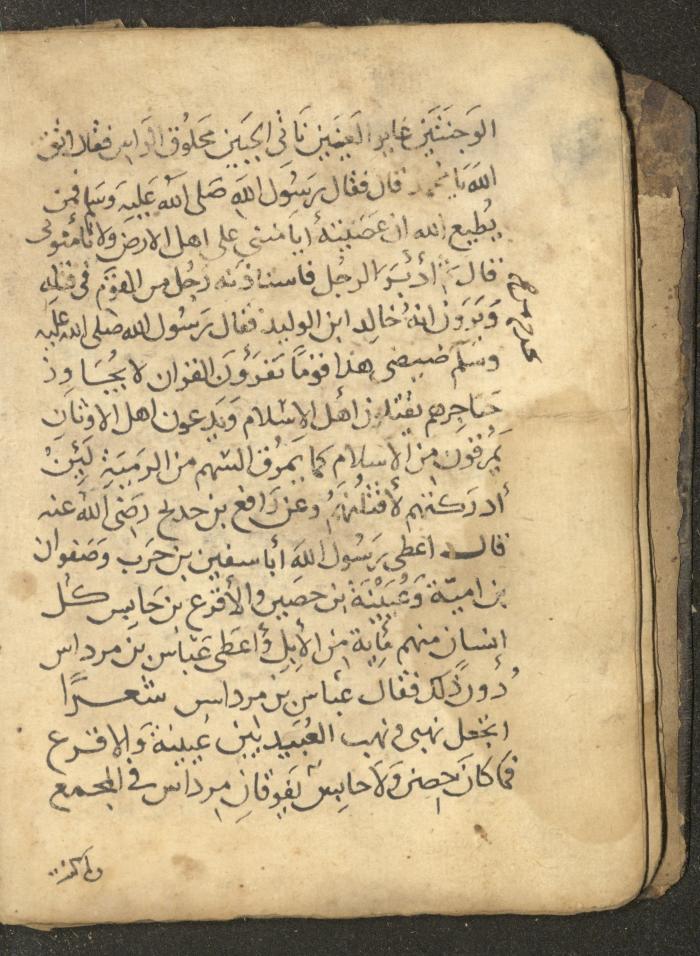 الوَجنَتَيْن غاير العَينَين نَاتى الجَبين مَحلُوق الراسِ فقال اتق
الله يَا محمد قال فقال رَسُول الله صَلى الله عَليه وَسَلم فمن
يُطيع الله ان عَصَيتهُ أيَامننى على اهل الارض ولا تأمنونى
قال ثم أدبَرَ الرجُل فاستاذنه رَجُل من القوم فى قتله
وَيَرَوْن انهُ خالد ابن الوليد فقال رَسُول الله صَلى الله عليه
وسَلم ضيضى هذا قومًا يَقرَؤُنَ القران لا يُجَاوِز
حناجِرهم يقتلون اهل الاسْلام وَيَدعون اهل الاوثان
يَمرقون مِن الاسلام كما يَمرُق السَهم من الرَميَةِ لَئِنْ
أدرَكتهم لأقتلنهم وعن رَافع بن خديج رَضى الله عنه
قال اعطى رَسُول الله أبا سفين بن حَرب وصَفوان
بن امية وَعُيَيْنَة بن حصين والأقرع بن حَابس كل
انسان منهم مايةً مِن الأبِلِ وأعطى عَبّاس بن مرداس
دُونَ ذلك فقال عبّاس بن مرداس شعرًا
اتجعل نهبى ونهب العُبَيد بَيْنَ عُيَينة وَالاقرع
فمَا كانَ حِصن وَلا حابسٌ يَفوقان مرداسَ فى المجمع